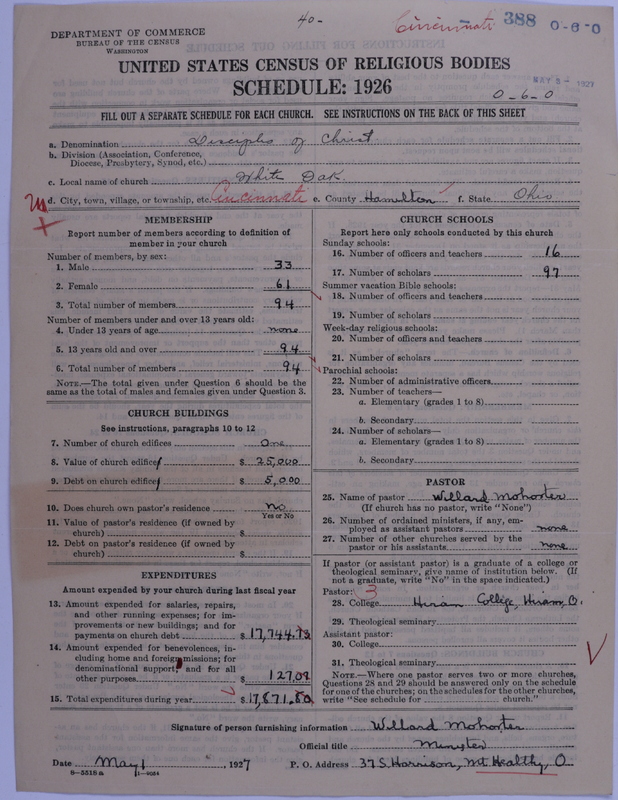 40-
Cincinnati 388 0-6-0
DEPARTMENT OF COMMERCE
BUREAU OF THE CENSUS
WASHINGTON
UNITED STATES CENSUS OF RELIGIOUS BODIES
SCHEDULE: 1926
MAY 3 - 1927
0-6-0
FILL OUT A SEPARATE SCHEDULE FOR EACH CHURCH. SEE INSTRUCTIONS ON THE BACK OF THIS SHEET
a. Denomination Disciples of Christ
b. Division (Association, Conference,
Diocese, Presbytery, Synod, etc.)
c. Local name of church White Oak
d. City, town, village, or township, etc. Cincinnati e. County Hamilton f. State Ohio
MEMBERSHIP
Report number of members according to definition of
member in your church
Number of members, by sex:
1. Male 33
2. Female 61
3. Total number of members 94
Number of members under and over 13 years old:
4. Under 13 years of age none
5. 13 years old and over 94
6. Total number of members 94
NOTE.—The total given under Question 6 should be the
same as the total of males and females given under Question 3.
CHURCH BUILDINGS
See instructions, paragraphs 10 to 12
7. Number of church edifices One
8. Value of church edifices $ 25,000
9. Debt on church edifices $ 5,000
10. Does church own pastor's residence No
Yes or No
11. Value of pastor's residence (if owned by
church) $
12. Debt on pastor's residence (if owned by
church) $
EXPENDITURES
Amount expended by your church during last fiscal year
13. Amount expended for salaries, repairs,
and other running expenses; for im-
provements or new buildings; and for
payments on church debt $ 17,744.73
14. Amount expended for benevolences, in-
cluding home and foreign missions; for
denominational support; and for all
other purposes 127.07
15. Total expenditures during year $ 17,871.80
CHURCH SCHOOLS
Report here only schools conducted by this church
Sunday schools:
16. Number of officers and teachers 16
17. Number of scholars 97
Summer vacation Bible schools:
18. Number of officers and teachers
19. Number of scholars
Week-day religious schools:
20. Number of officers and teachers
21. Number of scholars
Parochial schools:
22. Number of administrative officers
23. Number of teachers—
a. Elementary (grades 1 to 8)
b. Secondary
24. Number of scholars—
a. Elementary (grades 1 to 8)
b. Secondary
PASTOR
25. Name of pastor Willard Mohorter
(If church has no pastor, write "None")
26. Number of ordained ministers, if any, em-
ployed as assistant pastors none
27. Number of other churches served by the
pastor or his assistants none
If pastor (or assistant pastor) is a graduate of a college or
theological seminary, give name of institution below. (If
not a graduate, write "No" in the space indicated.)
Pastor: 3
28. College Hiram College, Hiram, O.
29. Theological seminary
Assistant pastor:
30. College
31. Theological seminary
NOTE.—Where one pastor serves two or more churches,
Questions 28 and 29 should be answered only on the schedule
for one of the churches; on the schedules for the other churches,
write "See schedule for church."
Signature of person furnishing information Willard Mohorter
Official title Minister
Date May 1, 1927 P. O. Address 37 S. Harrison, Mt. Healthy, O.
8-5518a